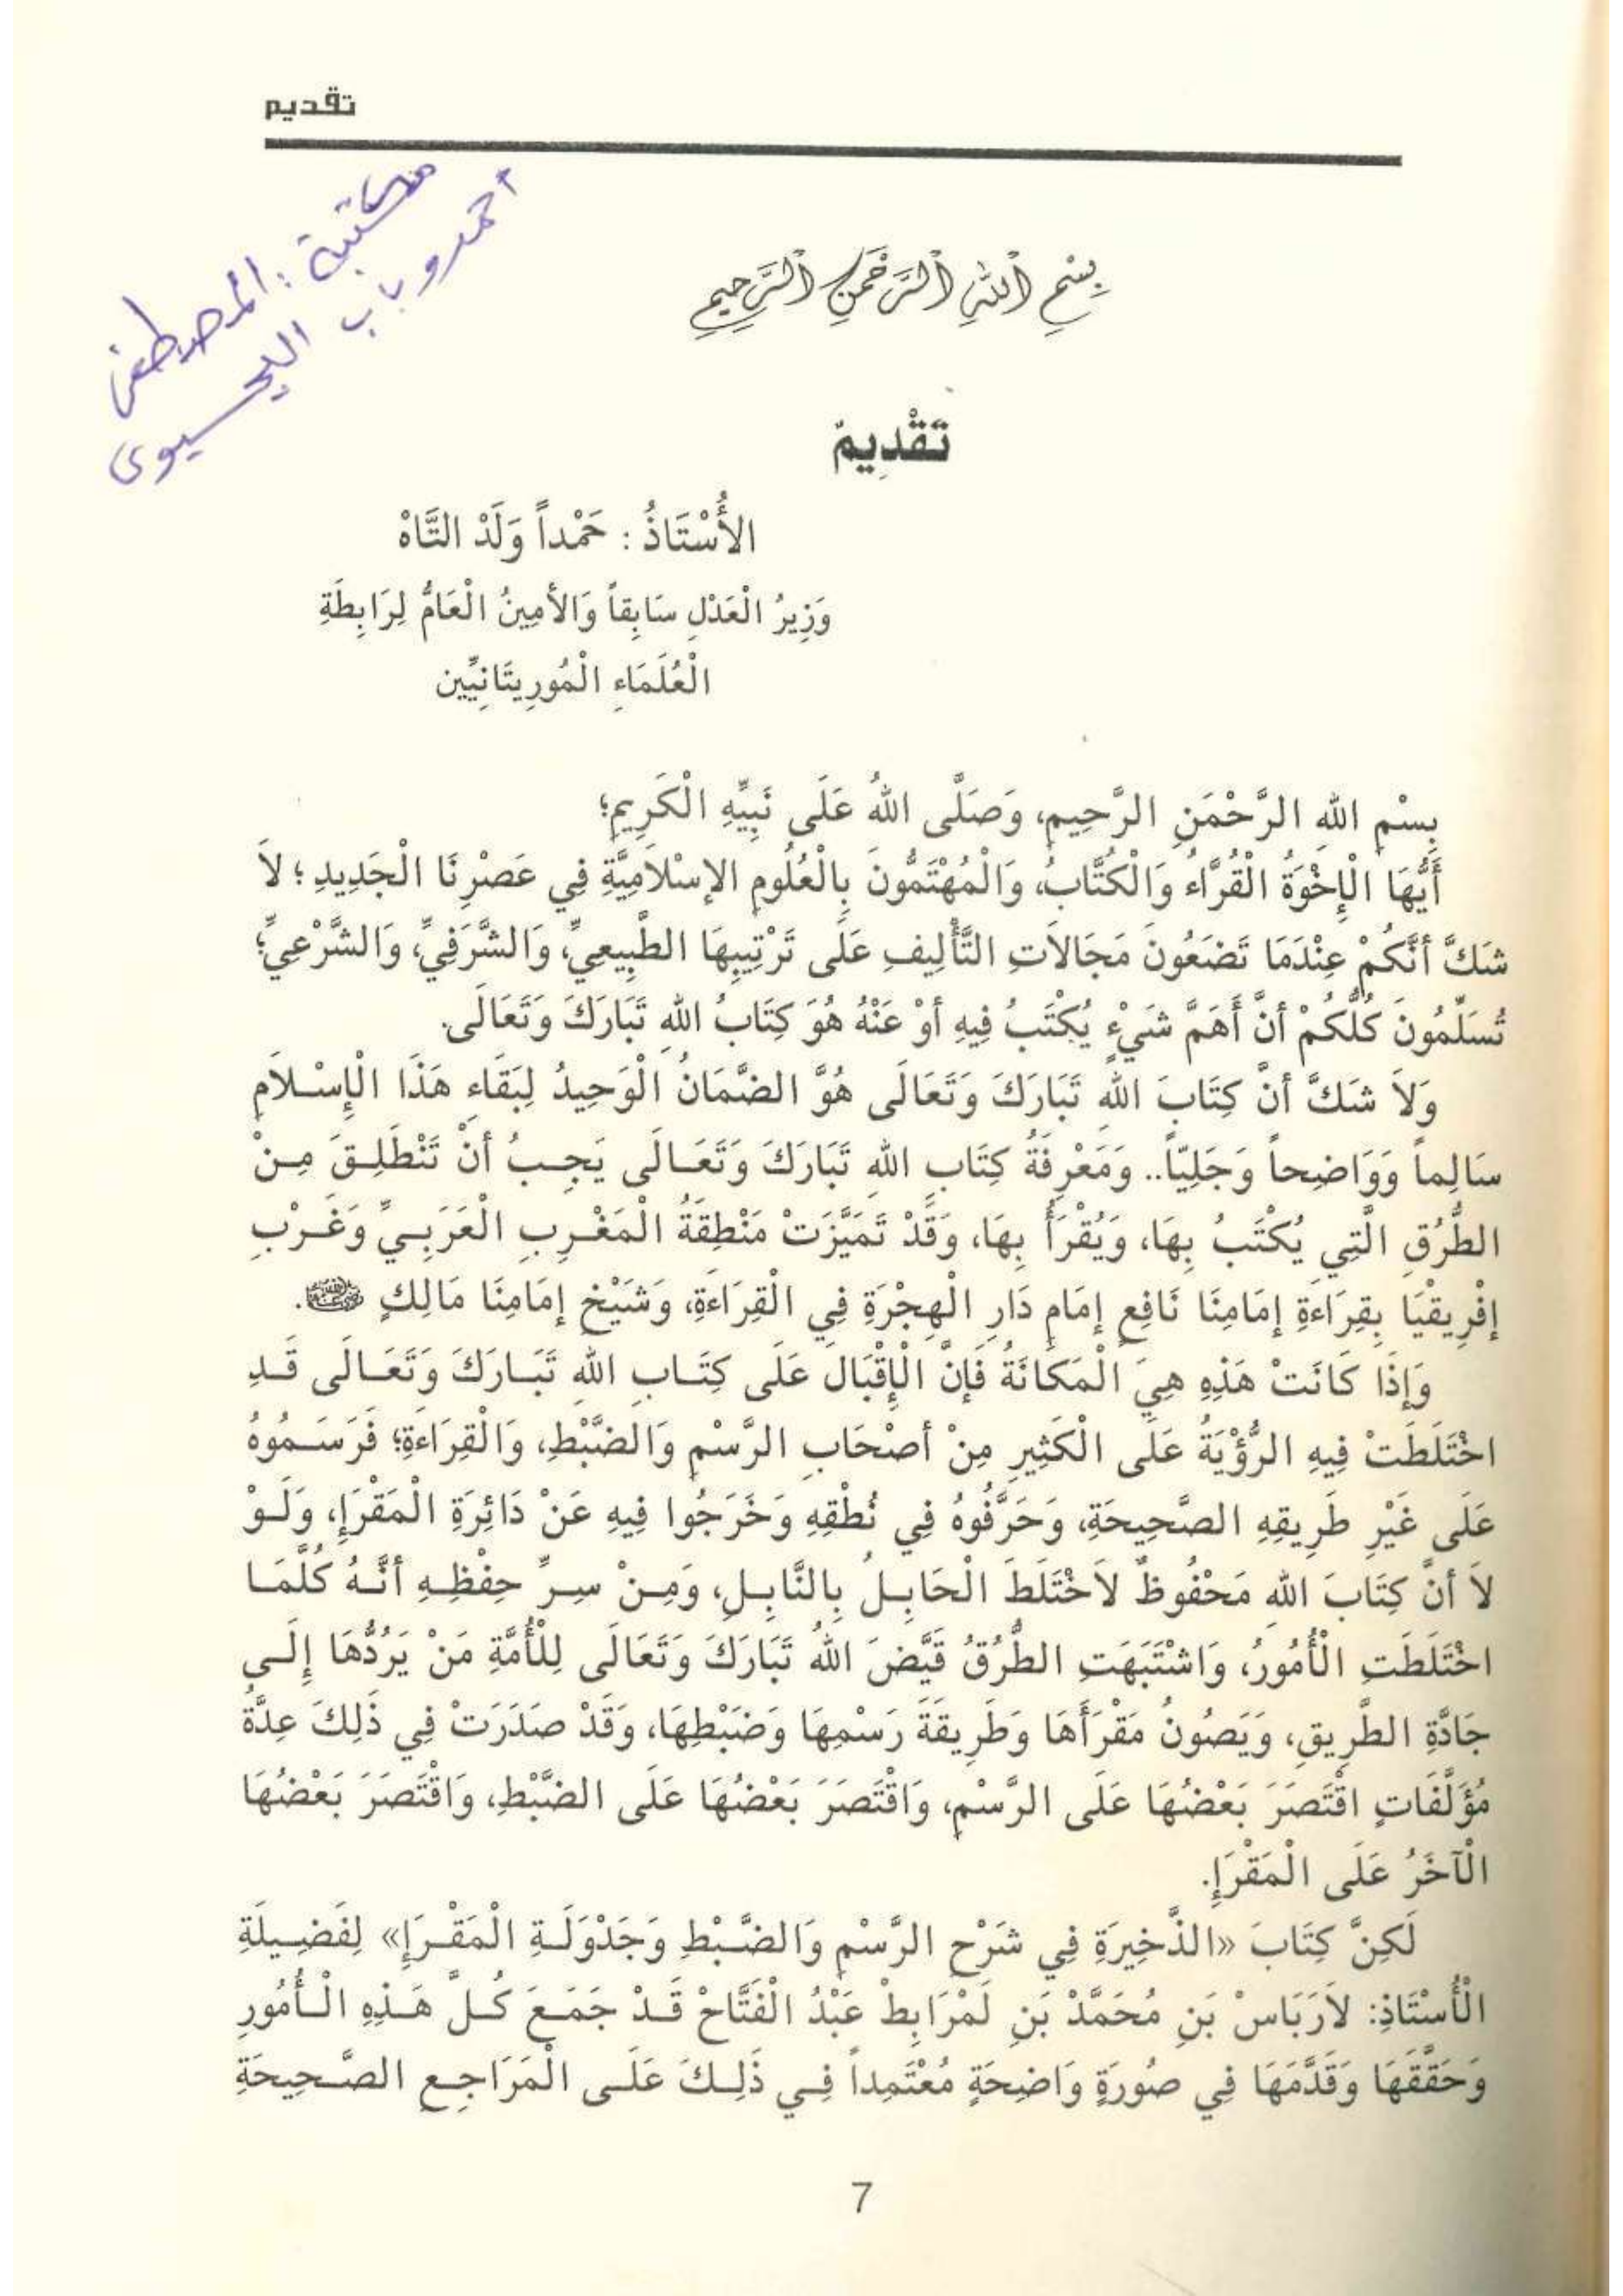 تقديم
مكتبة : المصطفى
أحمدو باب
بِسْمِ اللهِ الرَّحْمَنِ الرَّحِيمِ
تَقْدِيمٌ
الأُسْتَاذُ : حَمْداً وَلَدْ التَّاهْ
وَزِيرُ الْعَدْلِ سَابِقاً وَالأمِينُ الْعَامُّ لِرَابِطَةِ
الْعُلَمَاءِ الْمُورِيتَانِيِّين
بِسْمِ اللهِ الرَّحْمَنِ الرَّحِيمِ، وَصَلَّى اللهُ عَلَى نَبِيِّهِ الْكَرِيمِ؛
أَيُّهَا الْإِخْوَةُ الْقُرَّاءُ وَالْكُتَّابُ، وَالْمُهْتَمُّونَ بِالْعُلُومِ الإسْلاَمِيَّةِ فِي عَصْرِنَا الْجَدِيدِ ؛ لاَ
شَكَّ أنَّكُمْ عِنْدَمَا تَضَعُونَ مَجَالاَتِ التَّأْلِيفِ عَلَى تَرْتِيبِهَا الطَّبِيعِيِّ، وَالشَّرَفِيِّ، وَالشَّرْعِيِّ؛
تُسَلِّمُونَ كُلُّكُمْ أنَّ أَهَمَّ شَيْءٍ يُكْتَبُ فِيهِ أوْ عَنْهُ هُوَ كِتَابُ اللهِ تَبَارَكَ وَتَعَالَى.
وَلاَ شَكَّ أنَّ كِتَابَ اللهِ تَبَارَكَ وَتَعَالَى هُوَّ الضَّمَانُ الْوَحِيدُ لِبَقَاءِ هَذَا الْإِسْلاَمِ
سَالِماً وَوَاضِحاً وَجَلِيّاً.. وَمَعْرِفَةُ كِتَابِ اللهِ تَبَارَكَ وَتَعَالَى يَجِبُ أنْ تَنْطَلِقَ مِنْ
الطُّرُقِ الَّتِي يُكْتَبُ بِهَا، وَيُقْرَأُ بِهَا، وَقَدْ تَمَيَّزَتْ مَنْطِقَةُ الْمَغْرِبِ الْعَرَبِيِّ وَغَرْبِ
إفْرِيقْيَا بِقِرَاءَةِ إمَامِنَا نَافِعٍ إمَامِ دَارِ الْهِجْرَةِ فِي الْقِرَاءَةِ، وَشَيْخِ إمَامِنَا مَالِكٍ رضي الله عنه.
وَإذَا كَانَتْ هَذِهِ هِيَ الْمَكَانَةُ فَإنَّ الْإقْبَالَ عَلَى كِتَابِ اللهِ تَبَارَكَ وَتَعَالَى قَدِ
اخْتَلَطَتْ فِيهِ الرُّؤْيَةُ عَلَى الْكَثِيرِ مِنْ أصْحَابِ الرَّسْمِ وَالضَّبْطِ، وَالْقِرَاءَةِ؛ فَرَسَمُوهُ
عَلَى غَيْرِ طَرِيقِهِ الصَّحِيحَةِ، وَحَرَّفُوهُ فِي نُطْقِهِ وَخَرَجُوا فِيهِ عَنْ دَائِرَةِ الْمَقْرَإِ، وَلَوْ
لاَ أنَّ كِتَابَ اللهِ مَحْفُوظٌ لاَخْتَلَطَ الْحَابِلُ بِالنَّابِلِ، وَمِنْ سِرِّ حِفْظِهِ أنَّهُ كُلَّمَا
اخْتَلَطَتِ الْأُمُورُ، وَاشْتَبَهَتِ الطُّرُقُ قَيَّضَ اللهُ تَبَارَكَ وَتَعَالَى لِلْأُمَّةِ مَنْ يَرُدُّهَا إِلَى
جَادَّةِ الطَّرِيقِ، وَيَصُونُ مَقْرَأَهَا وَطَرِيقَةَ رَسْمِهَا وَضَبْطِهَا، وَقَدْ صَدَرَتْ فِي ذَلِكَ عِدَّةُ
مُؤَلَّفَاتٍ اقْتَصَرَ بَعْضُهَا عَلَى الرَّسْمِ، وَاقْتَصَرَ بَعْضُهَا عَلَى الضَّبْطِ، وَاقْتَصَرَ بَعْضُهَا
الْآخَرُ عَلَى الْمَقْرَإِ.
لَكِنَّ كِتَابَ «الذَّخِيرَةِ فِي شَرْحِ الرَّسْمِ وَالضَّبْطِ وَجَدْوَلَةِ الْمَقْرَإِ» لِفَضِيلَةِ
الْأُسْتَاذِ: لاَرَبَاسْ بَنِ مُحَمَّدْ بَنِ لَمْرَابِطْ عَبْدُ الْفَتَّاحْ قَدْ جَمَعَ كُلَّ هَذِهِ الْأُمُورِ
وَحَقَّقَهَا وَقَدَّمَهَا فِي صُورَةٍ وَاضِحَةٍ مُعْتَمِداً فِي ذَلِكَ عَلَى الْمَرَاجِعِ الصَّحِيحَةِ
7